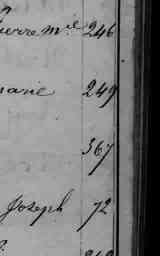 Pierre Mel 246
marie 249
367
Joseph 72